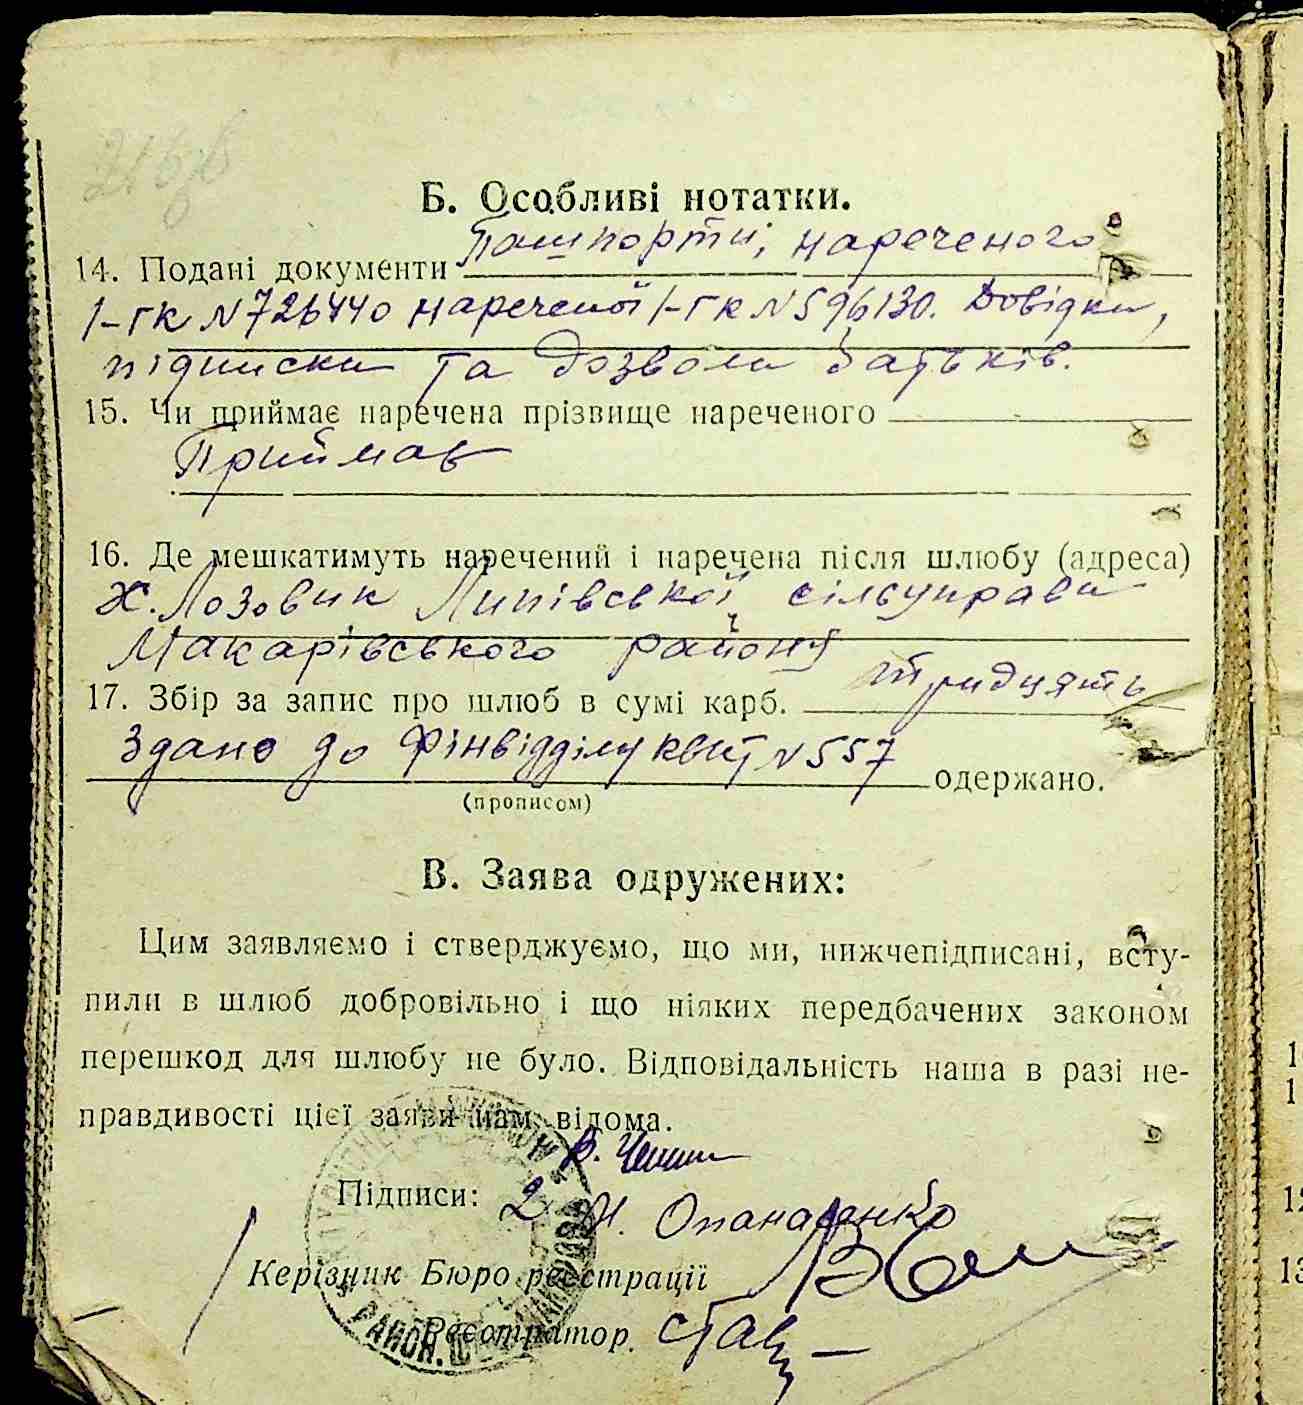 Б. Особливі нотатки.
14. Подані документи Пашпорти, нареченого
І-ГК N 726440 нареченої І-ГК N 596130. Довідки,
підписки та дозволи батьків.
15. Чи приймає наречена прізвище нареченого
Приймає
16. Де мешкатимуть наречений і наречена після шлюбу (адреса)
х. Лозовик Липівської сільуправи
Макарівського району
17. Збір за запис про шлюб в сумі карб. тридцять
Здано до Фінвідділу квит N 557 одержано.
(прописом)
В. Заява одружених:
Цим заявляємо і стверджуємо, що ми, нижчепідписані, всту-
пили в шлюб добровільно і що ніяких передбачених законом
перешкод для шлюбу не було. Відповідальність наша в разі не-
правдивості цієї заяви нам відома.
В.
Підписи: 2 Н. Опанасенко
Керізник Бюро реєстрації
Реєстратор